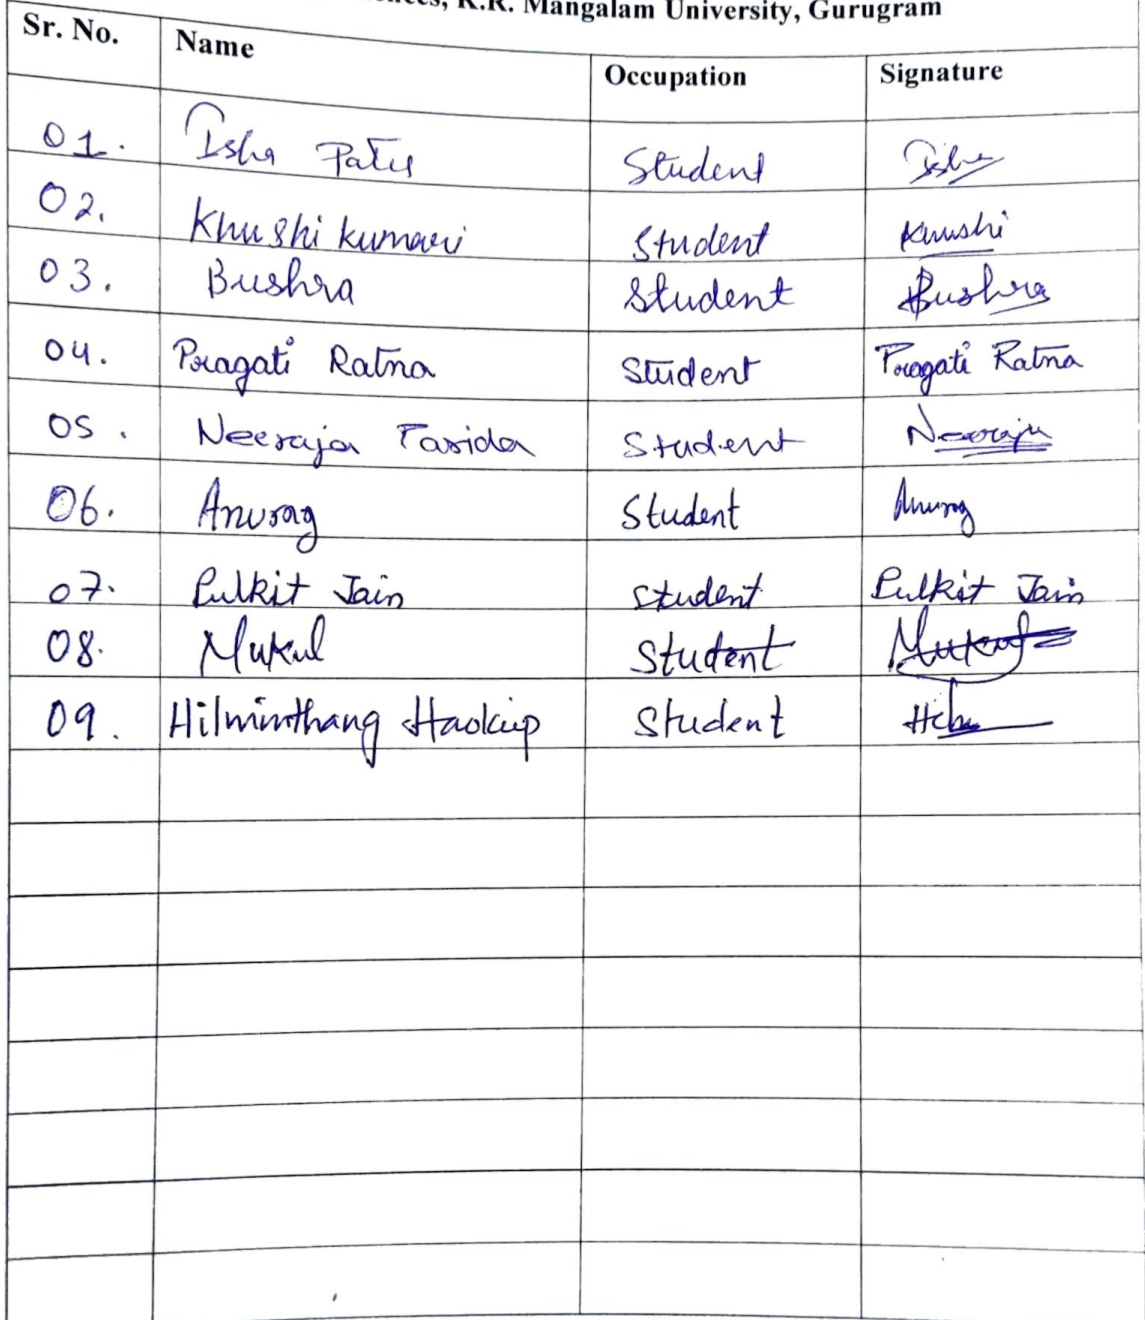 K.R. Mangalam University, Gurugram
Sr. No. Name Occupation Signature
01. Isha Student Isha
02. Khushi kumari Student Khushi
03. Bushra Student Bushra
04. Pragati Ratna Student Pragati Ratna
05. Neeraja Tarida Student Neeraja
06. Anurag Student Anurag
07. Pulkit Jain Student Pulkit Jain
08. Mukul Student Mukul
09. Hilminthang Haokip Student